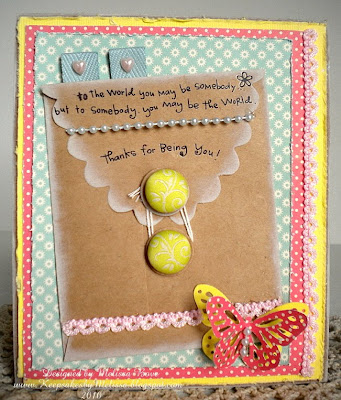 to The World you may be somebody
but to somebody you may be the World.
Thanks for Being You!
Designed by Melissa
www.KeepsakesbyMelissa.blogspot.com
2010